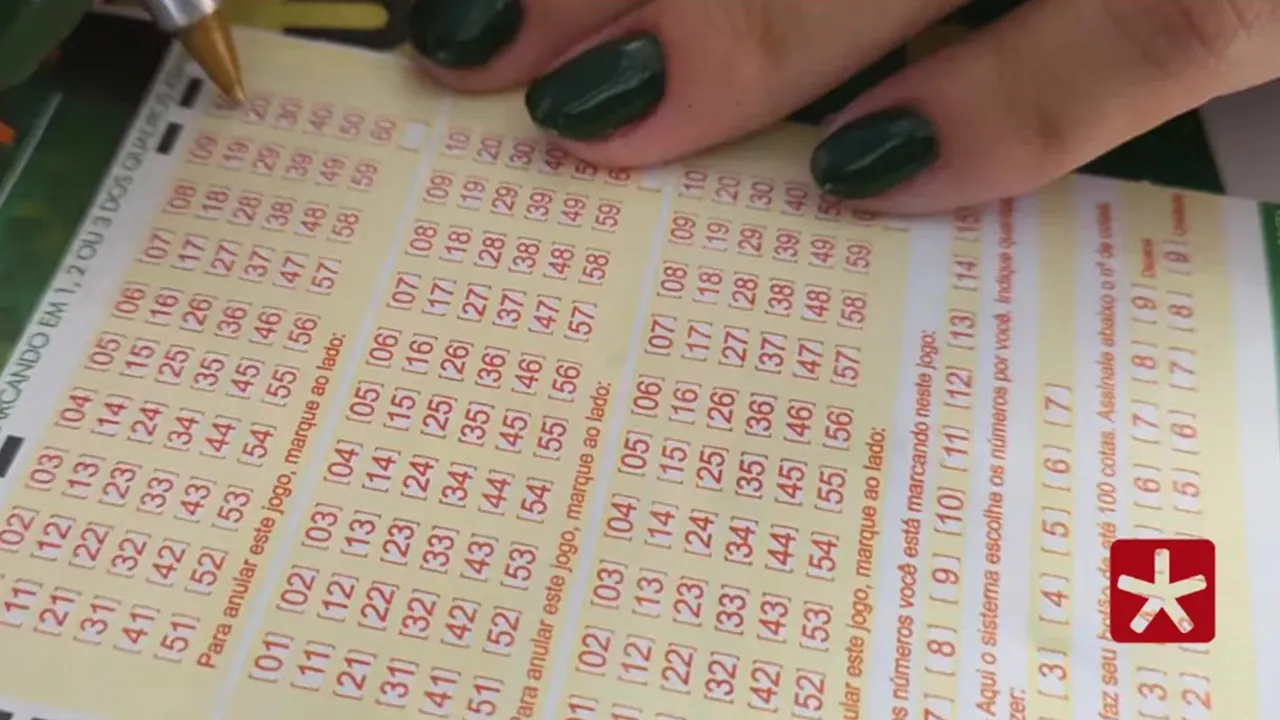 RCANDO EM 1, 2 OU 3 DOS
02] [03] [04] [05] [06] [07] [08] [09]
[11] [12] [13] [14] [15] [16] [17] [18] [19] [20]
[21] [22] [23] [24] [25] [26] [27] [28] [29] [30]
[31] [32] [33] [34] [35] [36] [37] [38] [39] [40]
[41] [42] [43] [44] [45] [46] [47] [48] [49] [50]
[51] [52] [53] [54] [55] [56] [57] [58] [59] [60]
Para anular este jogo, marque ao lado:
[01] [02] [03] [04] [05] [06] [07] [08] [09] [10]
[11] [12] [13] [14] [15] [16] [17] [18] [19] [20]
[21] [22] [23] [24] [25] [26] [27] [28] [29] [30]
[31] [32] [33] [34] [35] [36] [37] [38] [39] [40
[41] [42] [43] [44] [45] [46] [47] [48] [49]
[51] [52] [53] [54] [55] [56] [57] [58] [59]
Para anular este jogo, marque ao lado:
01] [02] [03] [04] [05] [06] [07] [08] [09] [10]
[12] [13] [14] [15] [16] [17] [18] [19] [20]
[22] [23] [24] [25] [26] [27] [28] [29] [30]
[32] [33] [34] [35] [36] [37] [38] [39] [40]
[42] [43] [44] [45] [46] [47] [48] [49]
[52] [53] [54] [55] [56] [57] [58] [59]
ular este jogo, marque ao lado:
os números você está marcando neste jogo:
7] [8] [9] [10] [11] [12] [13] [14] [15
Aqui o sistema escolhe os números por você. Indique
zer:
[3] [4] [5] [6] [7]
faz seu bolão de até 100 cotas. Assinale abaixo o nº de cotas
[3] [6] [7] [8] [9]
2] [5] [6] [7] [8] [9]